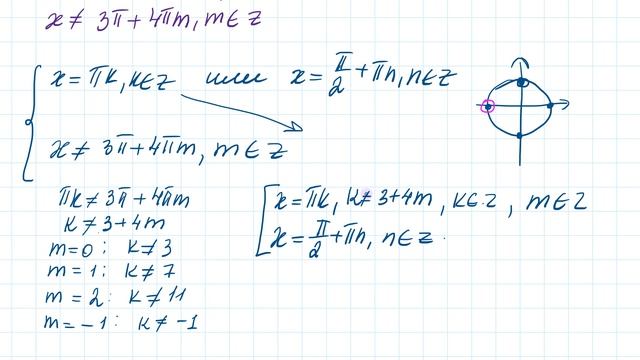 x ≠ 3π + 4πm, m ∈ Z
x = πk, k∈Z или x = π/2 + πn, n∈Z
x ≠ 3π + 4πm, m ∈ Z
πk ≠ 3π + 4πm
k ≠ 3 + 4m
m = 0 : k ≠ 3
m = 1 : k ≠ 7
m = 2 : k ≠ 11
m = -1 : k ≠ -1
x = πk, k ≠ 3 + 4m, k∈Z, m ∈ Z
x = π/2 + πn, n ∈ Z.